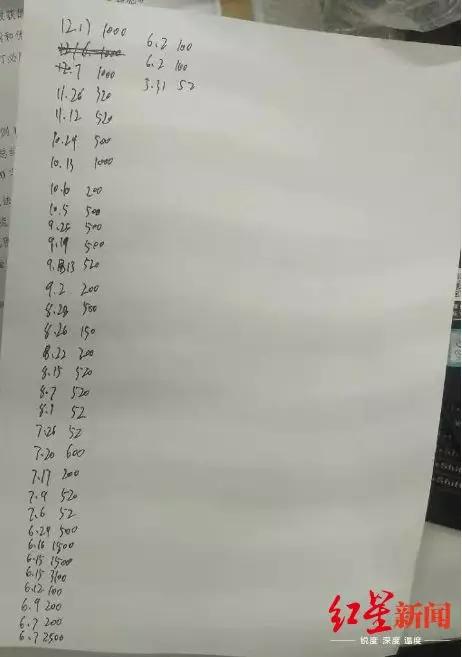 12.17 1000
12.7 1000
11.26 320
11.12 520
10.24 500
10.13 1000
10.10 200
10.5 500
9.25 500
9.19 500
9.13 520
9.2 200
8.28 500
8.26 150
8.22 200
8.15 520
8.7 520
8.1 52
7.26 52
7.20 600
7.17 200
7.9 520
7.6 52
6.24 500
6.16 1500
6.15 1500
6.15 3100
6.12 100
6.9 200
6.7 200
6.7 2500
6.2 100
6.2 100
3.31 52
红星新闻
锐度 深度 温度